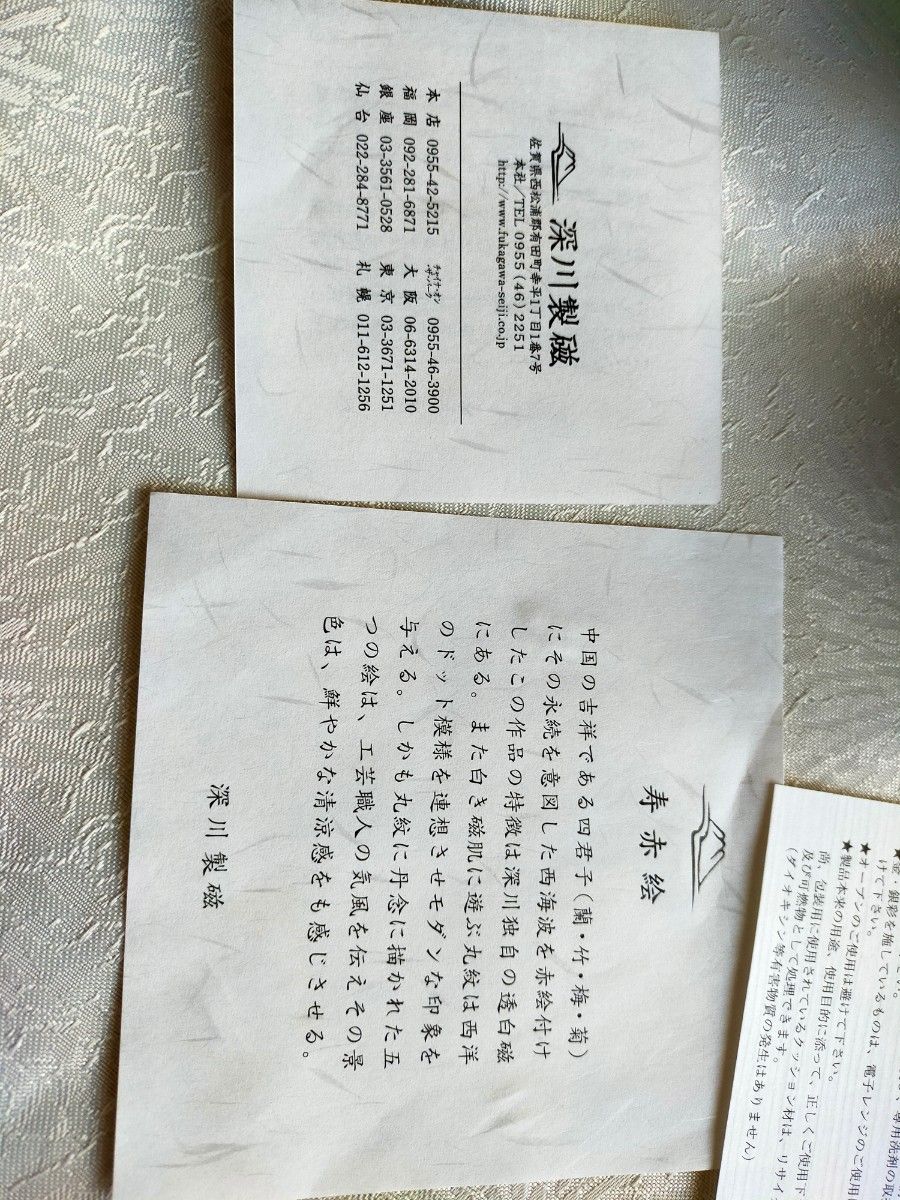 深川製磁
佐賀県西松浦郡有田町幸平1丁目1番7号
本社/TEL 0955(46)2251
http://www.fukagawa-seiji.co.jp
本店 0955-42-5215 チャイナ・オン・ザ・パーク 0955-46-3900
福岡 092-281-6871 大阪 06-6314-2010
銀座 03-3561-0528 東京 03-3671-1251
仙台 022-284-8771 札幌 011-612-1256
寿赤絵
中国の吉祥である四君子(蘭・竹・梅・菊)
にその永続を意図した西海波を赤絵付け
したこの作品の特徴は深川独自の透白磁
にある。また白き磁肌に遊ぶ丸紋は西洋
のドット模様を連想させモダンな印象を
与える。しかも丸紋に丹念に描かれた五
つの絵は、工芸職人の気風を伝えその景
色は、鮮やかな清涼感をも感じさせる。
深川製磁
専用洗剤の取
★金、銀彩を施しているものは、電子レンジのご使用
けて下さい。
★オーブンのご使用は避けて下さい。
★製品本来の用途、使用目的に添って、正しくご使用下
尚、包装用に使用されているクッション材は、リサイ
及び可燃物として処理できます。
(ダイオキシン等有害物質の発生はありません)